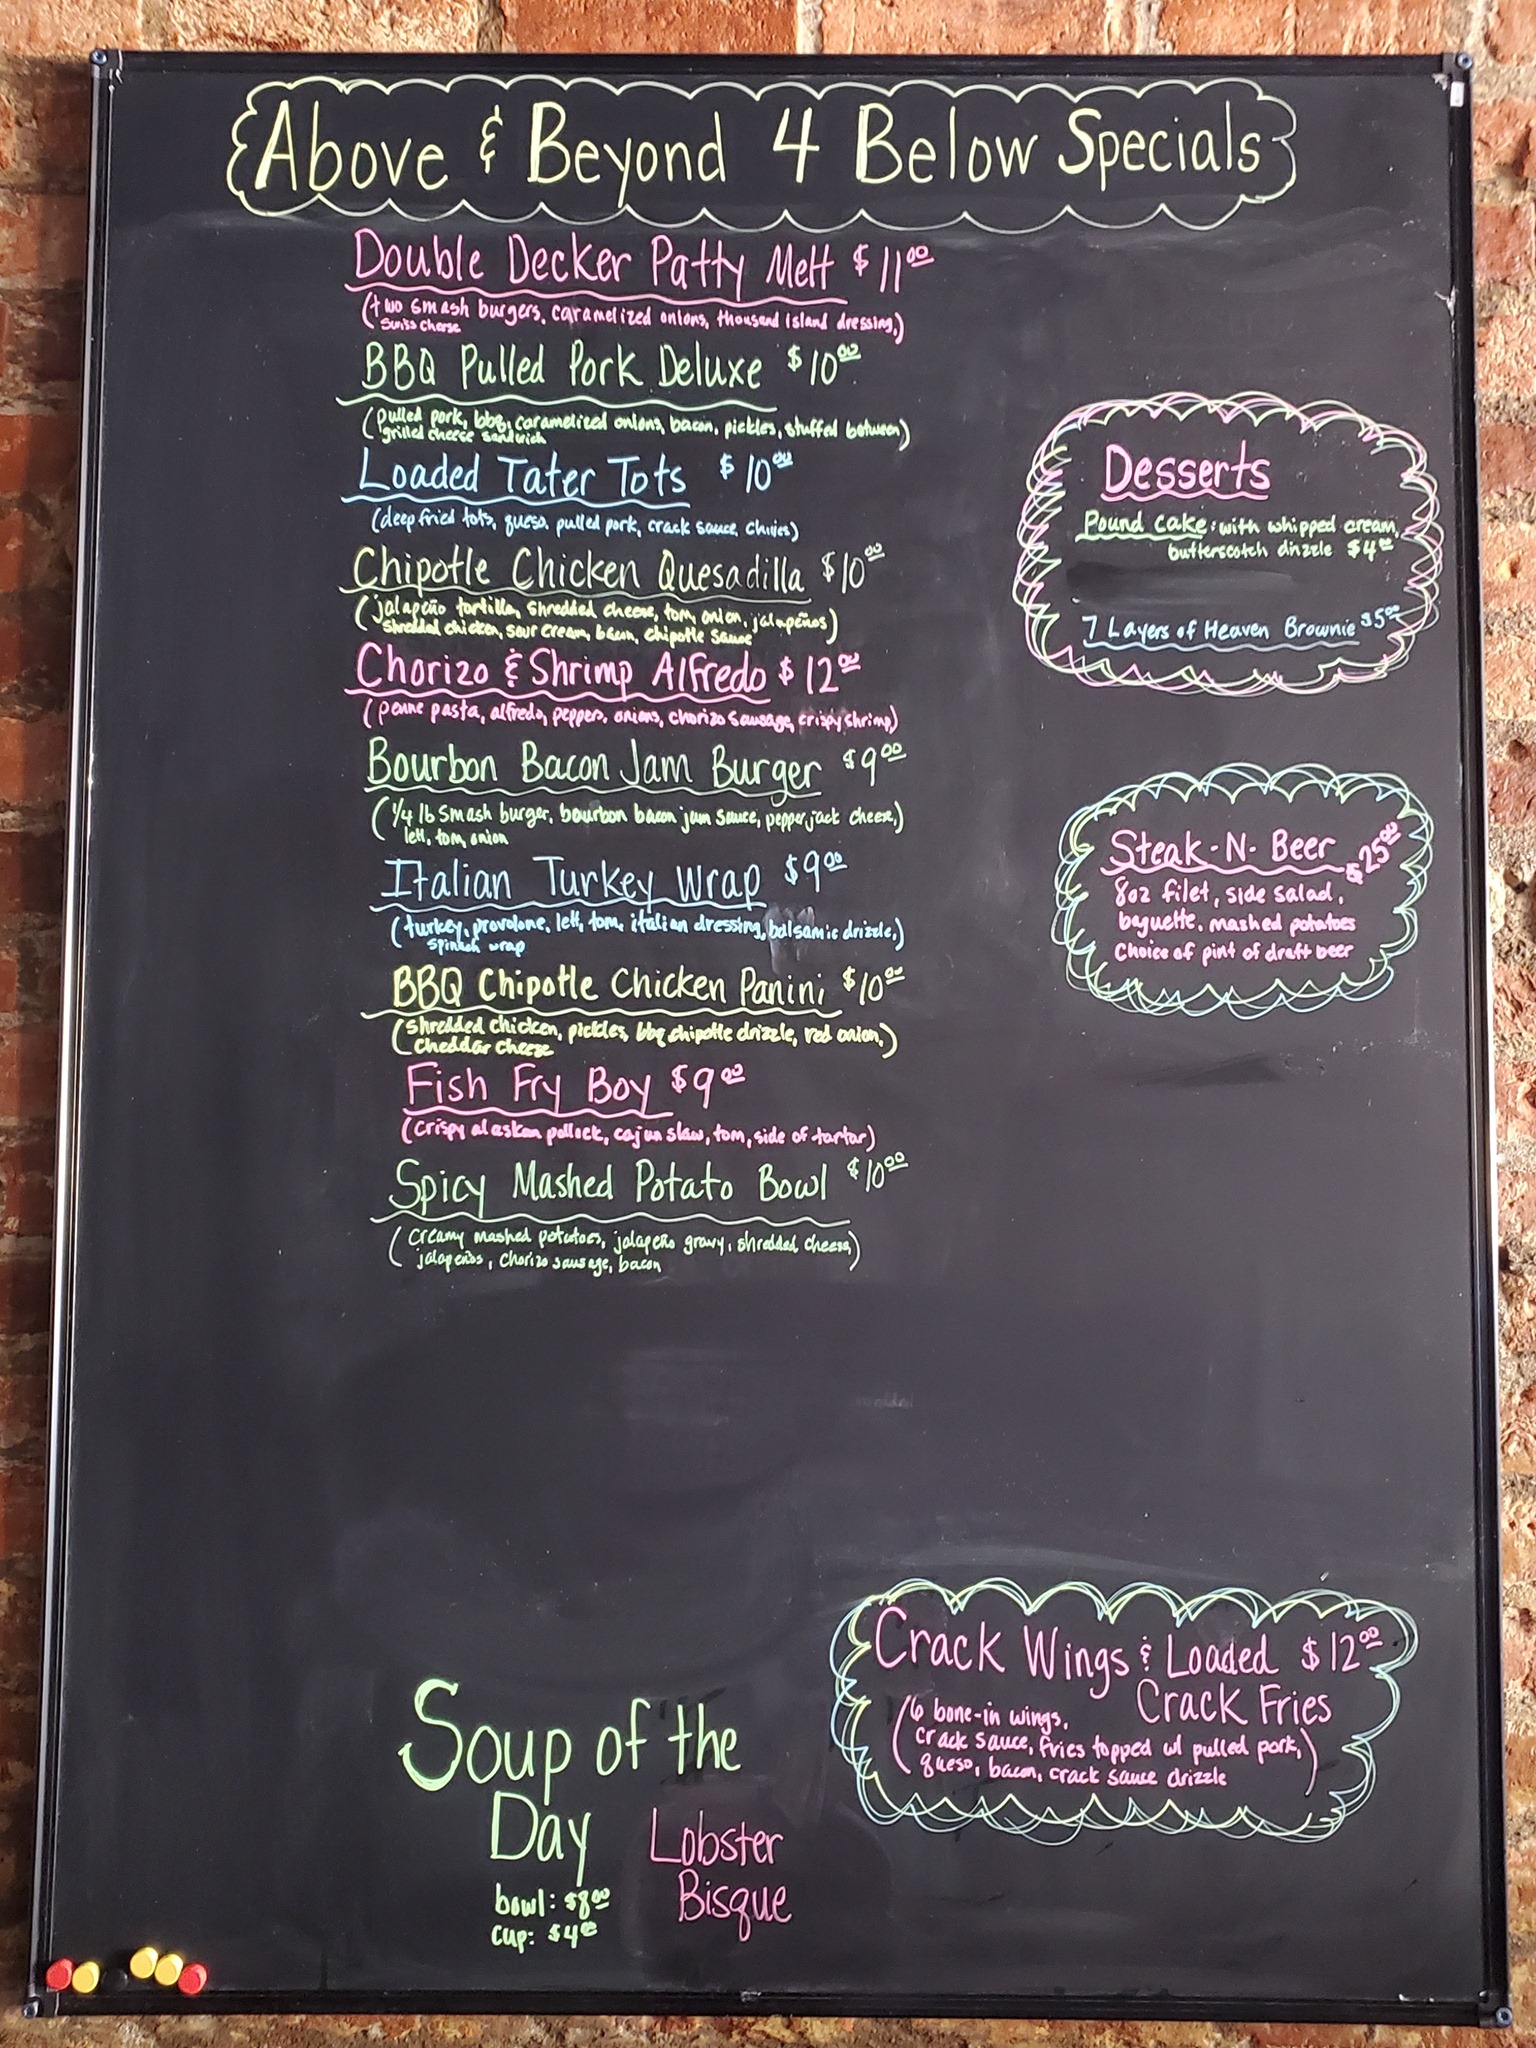 Above & Beyond 4 Below Specials
Double Decker Patty Melt $11.00
(two smash burgers, caramelized onions, thousand island dressing,)
Swiss cheese
BBQ Pulled Pork Deluxe $10.00
(pulled pork, bbq, caramelized onions, bacon, pickles, stuffed between)
grilled cheese sandwich
Loaded Tater Tots $10.00
(deep fried tots, queso, pulled pork, crack sauce, chives)
Chipotle Chicken Quesadilla $10.00
(jalapeño tortilla, shredded cheese, tom, onion, jalapeños)
shredded chicken, sour cream, bacon, chipotle sauce
Chorizo & Shrimp Alfredo $12.00
(penne pasta, alfredo, peppers, onions, chorizo sausage, crispy shrimp)
Bourbon Bacon Jam Burger $9.00
(1/4 lb smash burger, bourbon bacon jam sauce, pepperjack cheese,)
lett, tom, onion
Italian Turkey Wrap $9.00
(turkey, provolone, lett, tom, italian dressing, balsamic drizzle,)
spinach wrap
BBQ Chipotle Chicken Panini $10.00
(shredded chicken, pickles, bbq chipotle drizzle, red onion,)
cheddar cheese
Fish Fry Boy $9.00
(crispy alaskan pollock, cajun slaw, tom, side of tartar)
Spicy Mashed Potato Bowl $10.00
(creamy mashed potatoes, jalapeño gravy, shredded cheese,)
jalapeños, chorizo sausage, bacon
Desserts
Pound Cake: with whipped cream,
butterscotch drizzle $4.00
7 Layers of Heaven Brownie $5.00
Steak-N-Beer $25.00
8oz filet, side salad,
baguette, mashed potatoes
Choice of pint of draft beer
Crack Wings & Loaded $12.00
Crack Fries
(6 bone-in wings,
crack sauce, fries topped w/ pulled pork,)
queso, bacon, crack sauce drizzle
Soup of the
Day
Lobster
Bisque
bowl: $8.00
cup: $4.00